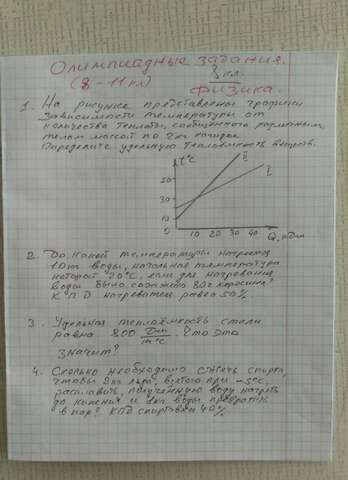 Олимпиадные задания.
(8-11 кл) 8 кл.
Физика.
1. На рисунке представлены графики
зависимости температуры от
количества теплоты, сообщённого различным
телам массой по 2 кг каждое
Определите удельную теплоёмкость веществ.
t°C
II
I
50
30
10
10 20 30 40 Q, кДж
2. До какой температуры нагреется
10 кг воды, начальная температура
которой 20°С, если для нагревания
воды было сожжено 80 г керосина?
КПД нагревателя равен 50%.
3. Удельная теплоёмкость стали
равна 500 Дж/кг°С. Что это
значит?
4. Сколько необходимо сжечь спирта,
чтобы 2 кг льда, взятого при -5°С,
расплавить, полученную воду нагреть
до кипения и 1 кг воды превратить
в пар? КПД спиртовки 40%